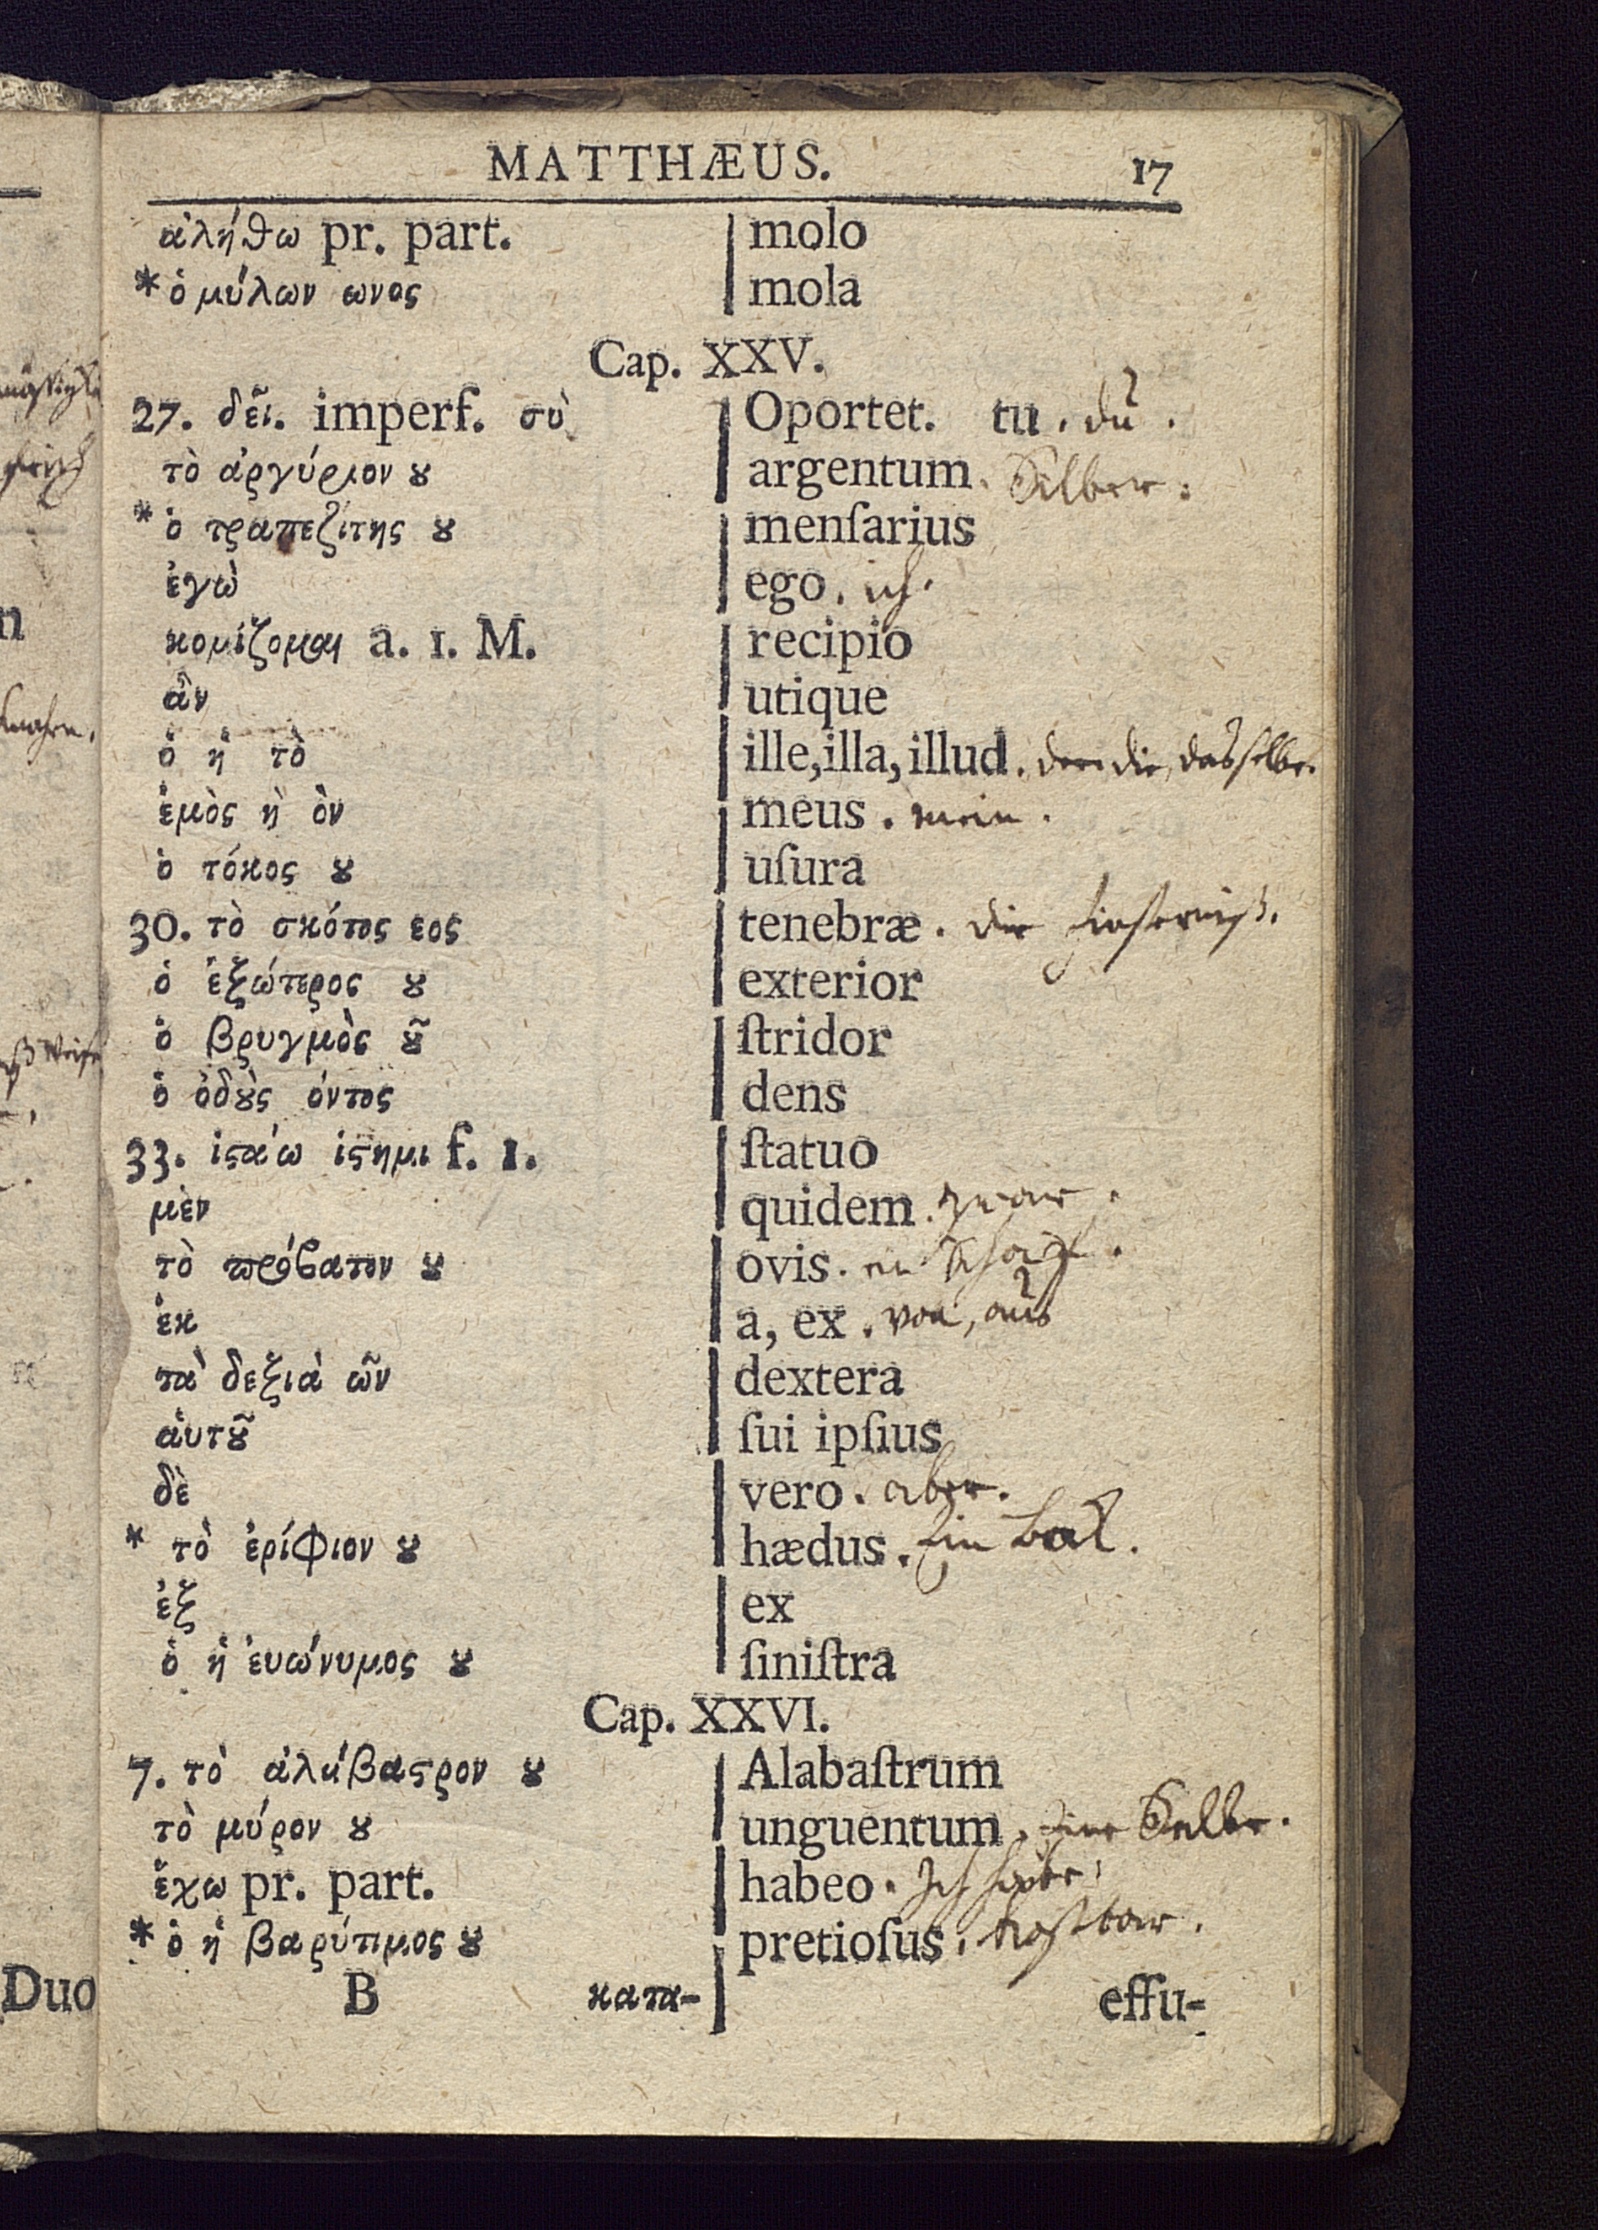 MATTHÆUS. 17
ἀλήθω pr. part. molo
* ὁ μύλων ωνος mola
Cap. XXV.
27. δεῖ. imperf. σὺ Oportet. tu. dŭ.
τὸ ἀργύριον ȣ argentum. Silber.
* ὁ τραπεζίτης ȣ menſarius
ἐγὼ ego. ich.
κομίζομαι a. 1. M. recipio
ἂν utique
ὁ ἡ τὸ ille, illa, illud. der die, dasselbe.
ἐμὸς ὴ ὸν meus. mein.
ὁ τόκος ȣ uſura
30. τὸ σκότος εος tenebræ. die finsterniß.
ὁ ἐξώτερος ȣ exterior
ὁ βρυγμὸς ȣ͂ ſtridor
ὁ ὀδȣ̀ς όντος dens
33. ἱϛάω ἵϛημι f. 1. ſtatuo
μὲν quidem. zwar.
τὸ πρόβατον ȣ ovis. ein Schaf.
ἐκ a, ex. von, aŭs
τὰ δεξιὰ ῶν dextera
αὑτȣ͂ ſui ipſius
δὲ vero. aber.
* τὸ ἐρίφιον ȣ hædus. Ein bok.
ἐξ ex
ὁ ἡ ἐυώνυμος ȣ ſiniſtra
Cap. XXVI.
7. τὸ ἀλάβαϛρον ȣ Alabaſtrum
τὸ μύρον ȣ unguentum. eine Salbe.
ἔχω pr. part. habeo. Ich habe.
* ὁ ἡ βαρύτιμος ȣ pretioſus. kostbar.
Duo B κατα- effu-